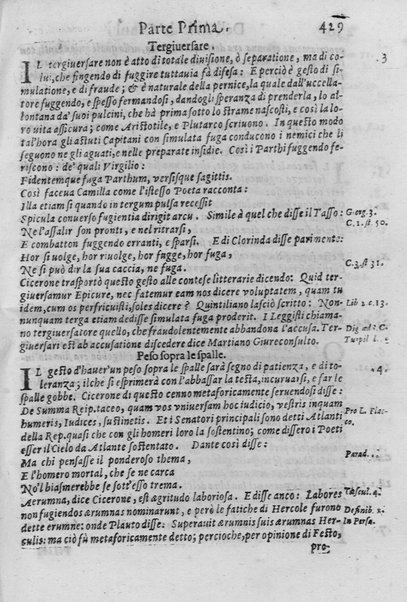 Parte Prima. 429
Tergiuersare.
IL tergiuersare non è atto di totale diuisione, ò separatione, ma di co-
lui, che fingendo di fuggire tuttauia fà difesa: E perciò è gesto di si-
mulatione, e di fraude; & è naturale della pernice, la quale dall'uccella-
tore fuggendo, e spesso fermandosi, dandogli speranza di prenderla, lo al-
lontana da' suoi pulcini, che hà prima sotto lo strame nascosti, e così la lo-
ro vita assicura; come Aristotile, e Plutarco scriuono. In questo modo
tal'hora gli astuti Capitani con simulata fuga conducono i nemici che li
seguono ne gli aguati, e nelle preparate insidie. Così i Parthi fuggendo fe-
riscono: de' quali Virgilio:
Fidentemque fuga Parthum, versisque sagittis.
Così faceua Camilla come l'istesso Poeta racconta:
Illa etiam si quando in tergum pulsa recessit
Spicula conuerso fugientia dirigit arcu. Simile à quel che disse il Tasso:
Ne l'assalir son pronti, e nel ritrarsi,
E combatton fuggendo erranti, e sparsi. E di Clorinda disse parimente:
Hor si uolge, hor riuolge, hor fugge, hor fuga,
Ne si può dir la sua caccia, ne fuga.
Cicerone trasportò questo gesto alle contese litterarie dicendo: Quid ter-
giuersamur Epicure, nec fatemur eam nos dicere voluptatem, quam tu
idem, cum os perfricuisti, soles dicere? Quintiliano lasciò scritto: Non-
nunquam terga etiam dedisse simulata fuga proderit. I Leggisti chiama-
no tergiuersatore quello, che fraudolentemente abbandona l'accusa. Ter-
giuersari est ab accusatione discedere dice Martiano Giureconsulto.
Peso sopra le spalle.
IL gesto d'hauer'un peso sopra le spalle sarà segno di patienza, e di to-
leranza; ilche si esprimerà con l'abbassar la testa, incuruarsi, e far le
spalle gobbe. Cicerone di questo cenno metaforicamente seruendosi disse:
De Summa Reip. taceo, quam vos vniuersam hoc iudicio, vestris inquam
humeris, Iudices, sustinetis. Et i Senatori principali sono detti Atlanti
della Rep. quasi che con gli homeri loro la sostentino; come dissero i Poeti
esser il Cielo da Atlante sostentato. Dante così disse:
Ma chi pensasse il ponderoso thema,
E l'homero mortal, che se ne carca
No'l biasmerebbe se sott'esso trema.
Aerumna, dice Cicerone, est ægritudo laboriosa. E disse anco: Labores
non fugiendos ærumnas nominarunt, e perciò le fatiche di Hercole furono
dette erumne: onde Plauto disse: Superauit ærumnis suis ærumnas Her-
culis: ma ciò fù metaforicamente detto; percioche, per opinione di Festo,
pro-
3
Georg. 3.
C. 1. st. 50.
C. 3. st 31.
Lib 2 c. 13.
Dig ad s. C.
Turpil l.
4.
Pro L. Flac-
co.
Parad.
Tuscul. 4.
Definib. 2.
In Persa.